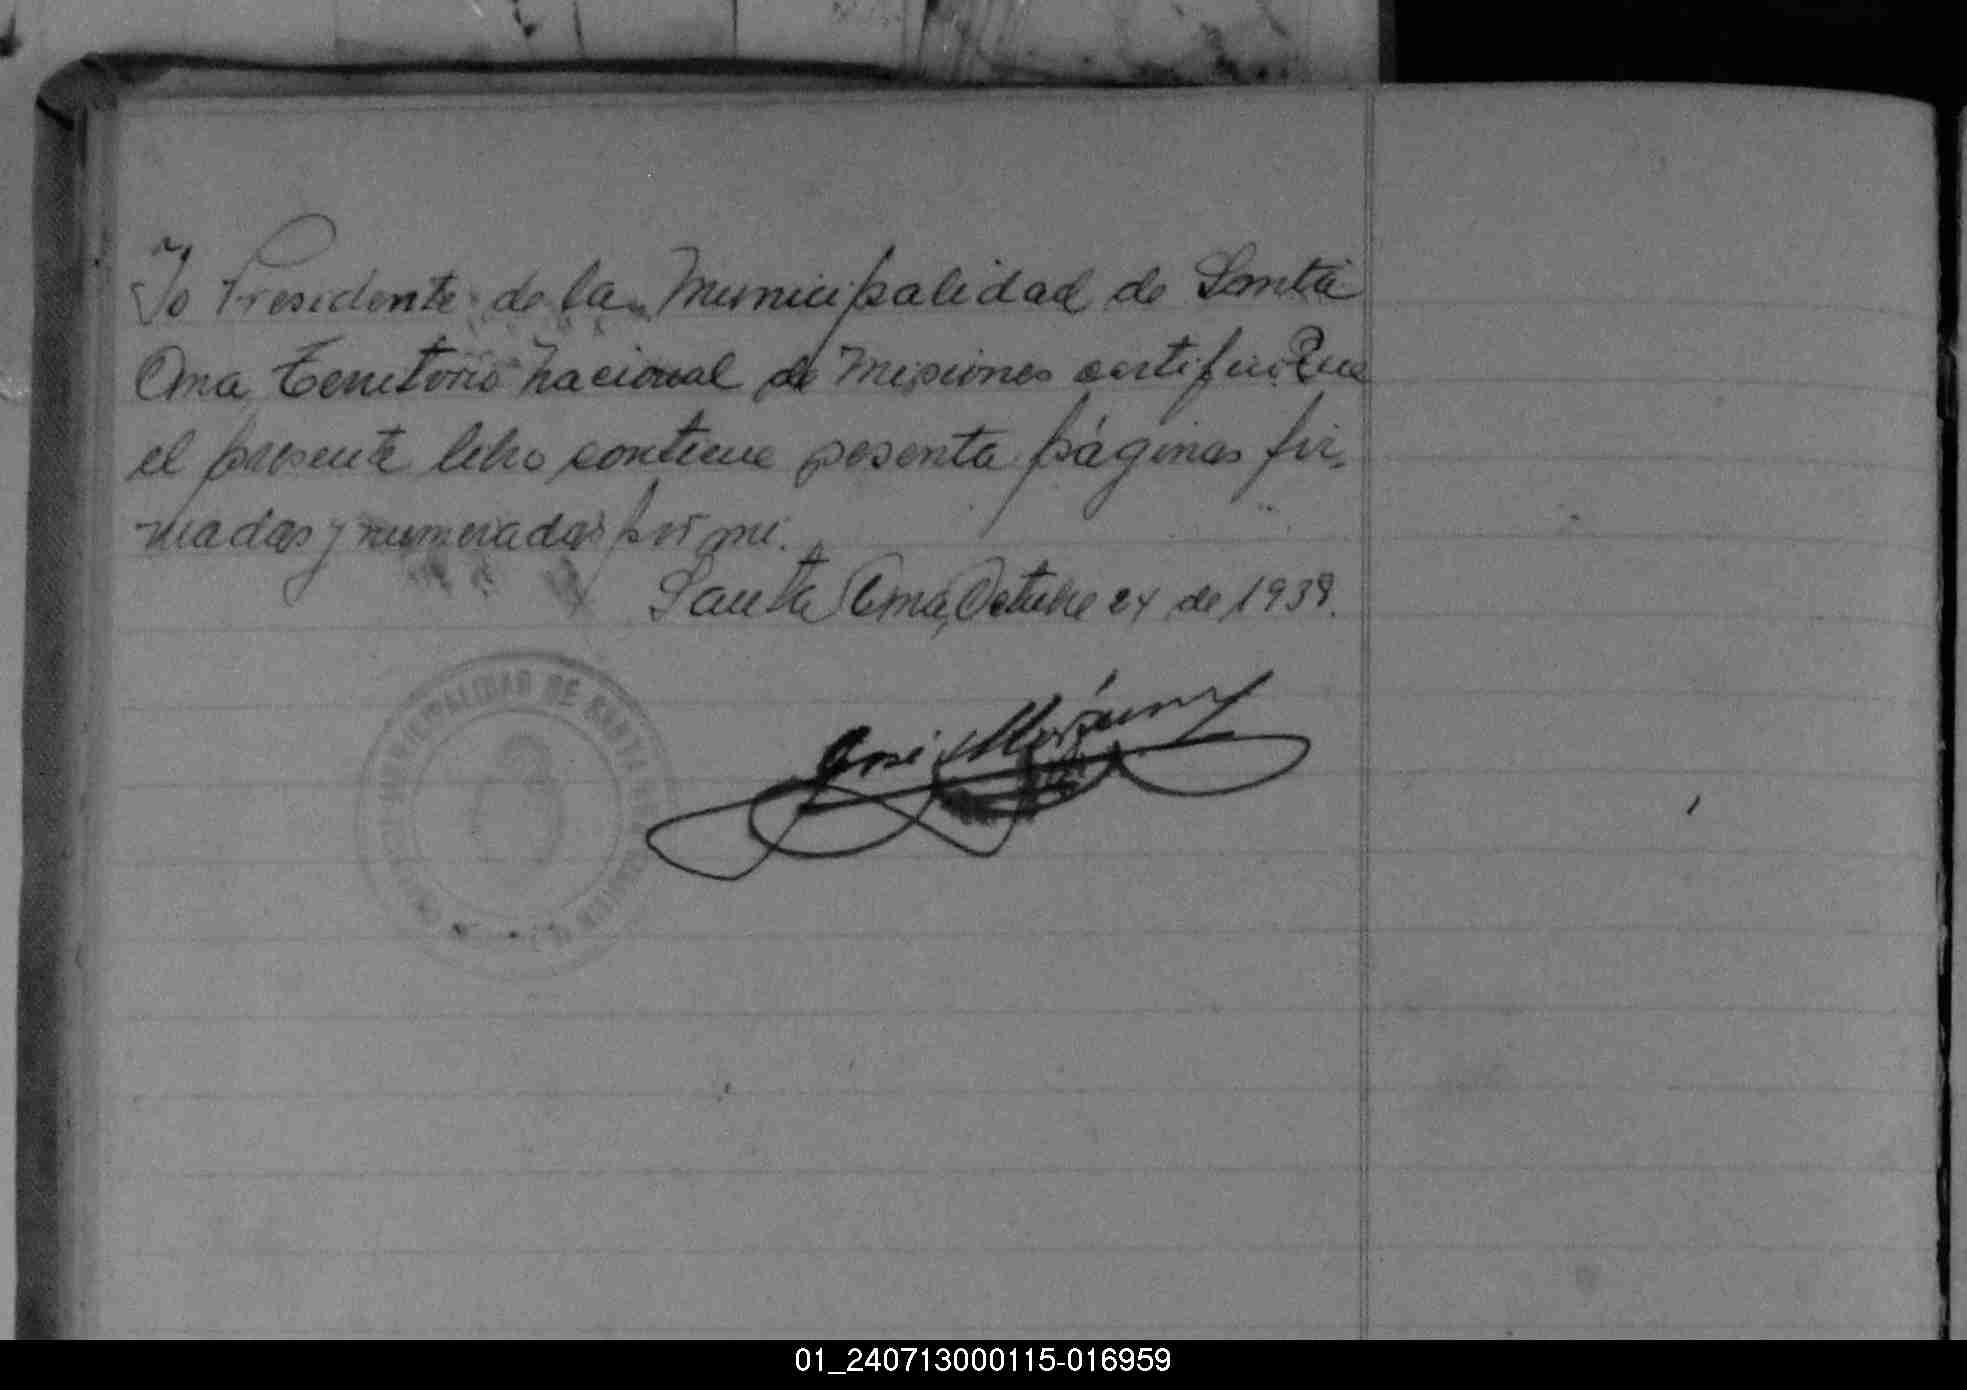 Yo Presidente de la Municipalidad de Santa
Ana Territorio Nacional de Misiones certifico Que
el presente libro contiene sesenta páginas fir-
madas y numeradas por mi.
Santa Ana, Octubre 24 de 1938.
MUNICIPALIDAD DE SANTA
José
01_240713000115-016959